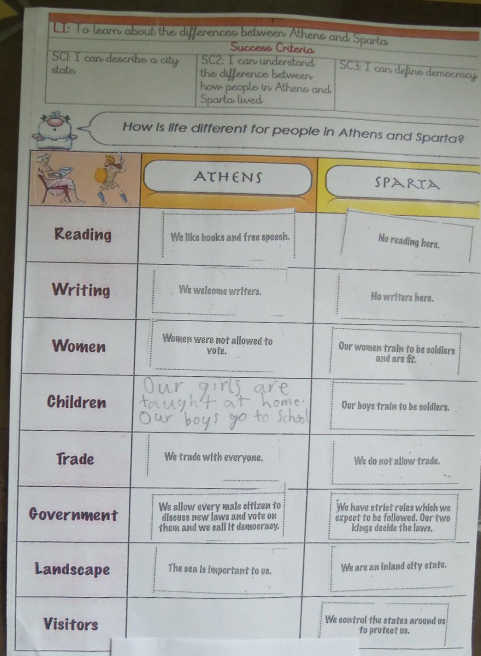 LI: To learn about the differences between Athens and Sparta
Success Criteria
SC1: I can describe a city
state
SC2: I can understand
the difference between
how people in Athens and
Sparta lived
SC3: I can define democracy
How is life different for people in Athens and Sparta?
ATHENS
SPARTA
Reading
We like books and free speech.
No reading here.
Writing
We welcome writers.
No writers here.
Women
Women were not allowed to
vote.
Our women train to be soldiers
and are fit.
Children
Our girls are
taught at home.
Our boys go to School
Our boys train to be soldiers.
Trade
We trade with everyone.
We do not allow trade.
Government
We allow every male citizen to
discuss new laws and vote on
them and we call it democracy.
We have strict rules which we
expect to be followed. Our two
kings decide the laws.
Landscape
The sea is important to us.
We are an inland city state.
Visitors
We control the states around us
to protect us.